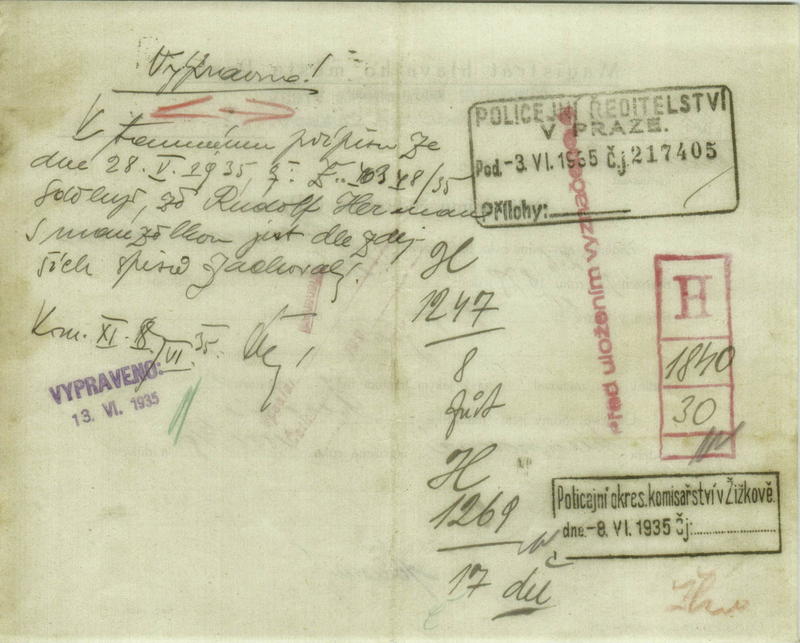 Vypraveno!
K tamnímu přípisu ze
dne 28. V. 1935
sděluji, že Rudolf Herman
s manželkou jest dle zdej-
ších spisů zachovalý.
Kom. XI. 8/VI. 35.
VYPRAVENO:
13. VI. 1935
POLICEJNÍ ŘEDITELSTVÍ
V PRAZE.
Pod. -3. VI. 1935 Č.j. 217405
Přílohy:
před uložením vyznačeno
H
1247
8
H
1269
17
H
1840
30
Policejní okres. komisařství v Žižkově.
dne -8. VI. 1935 Čj: